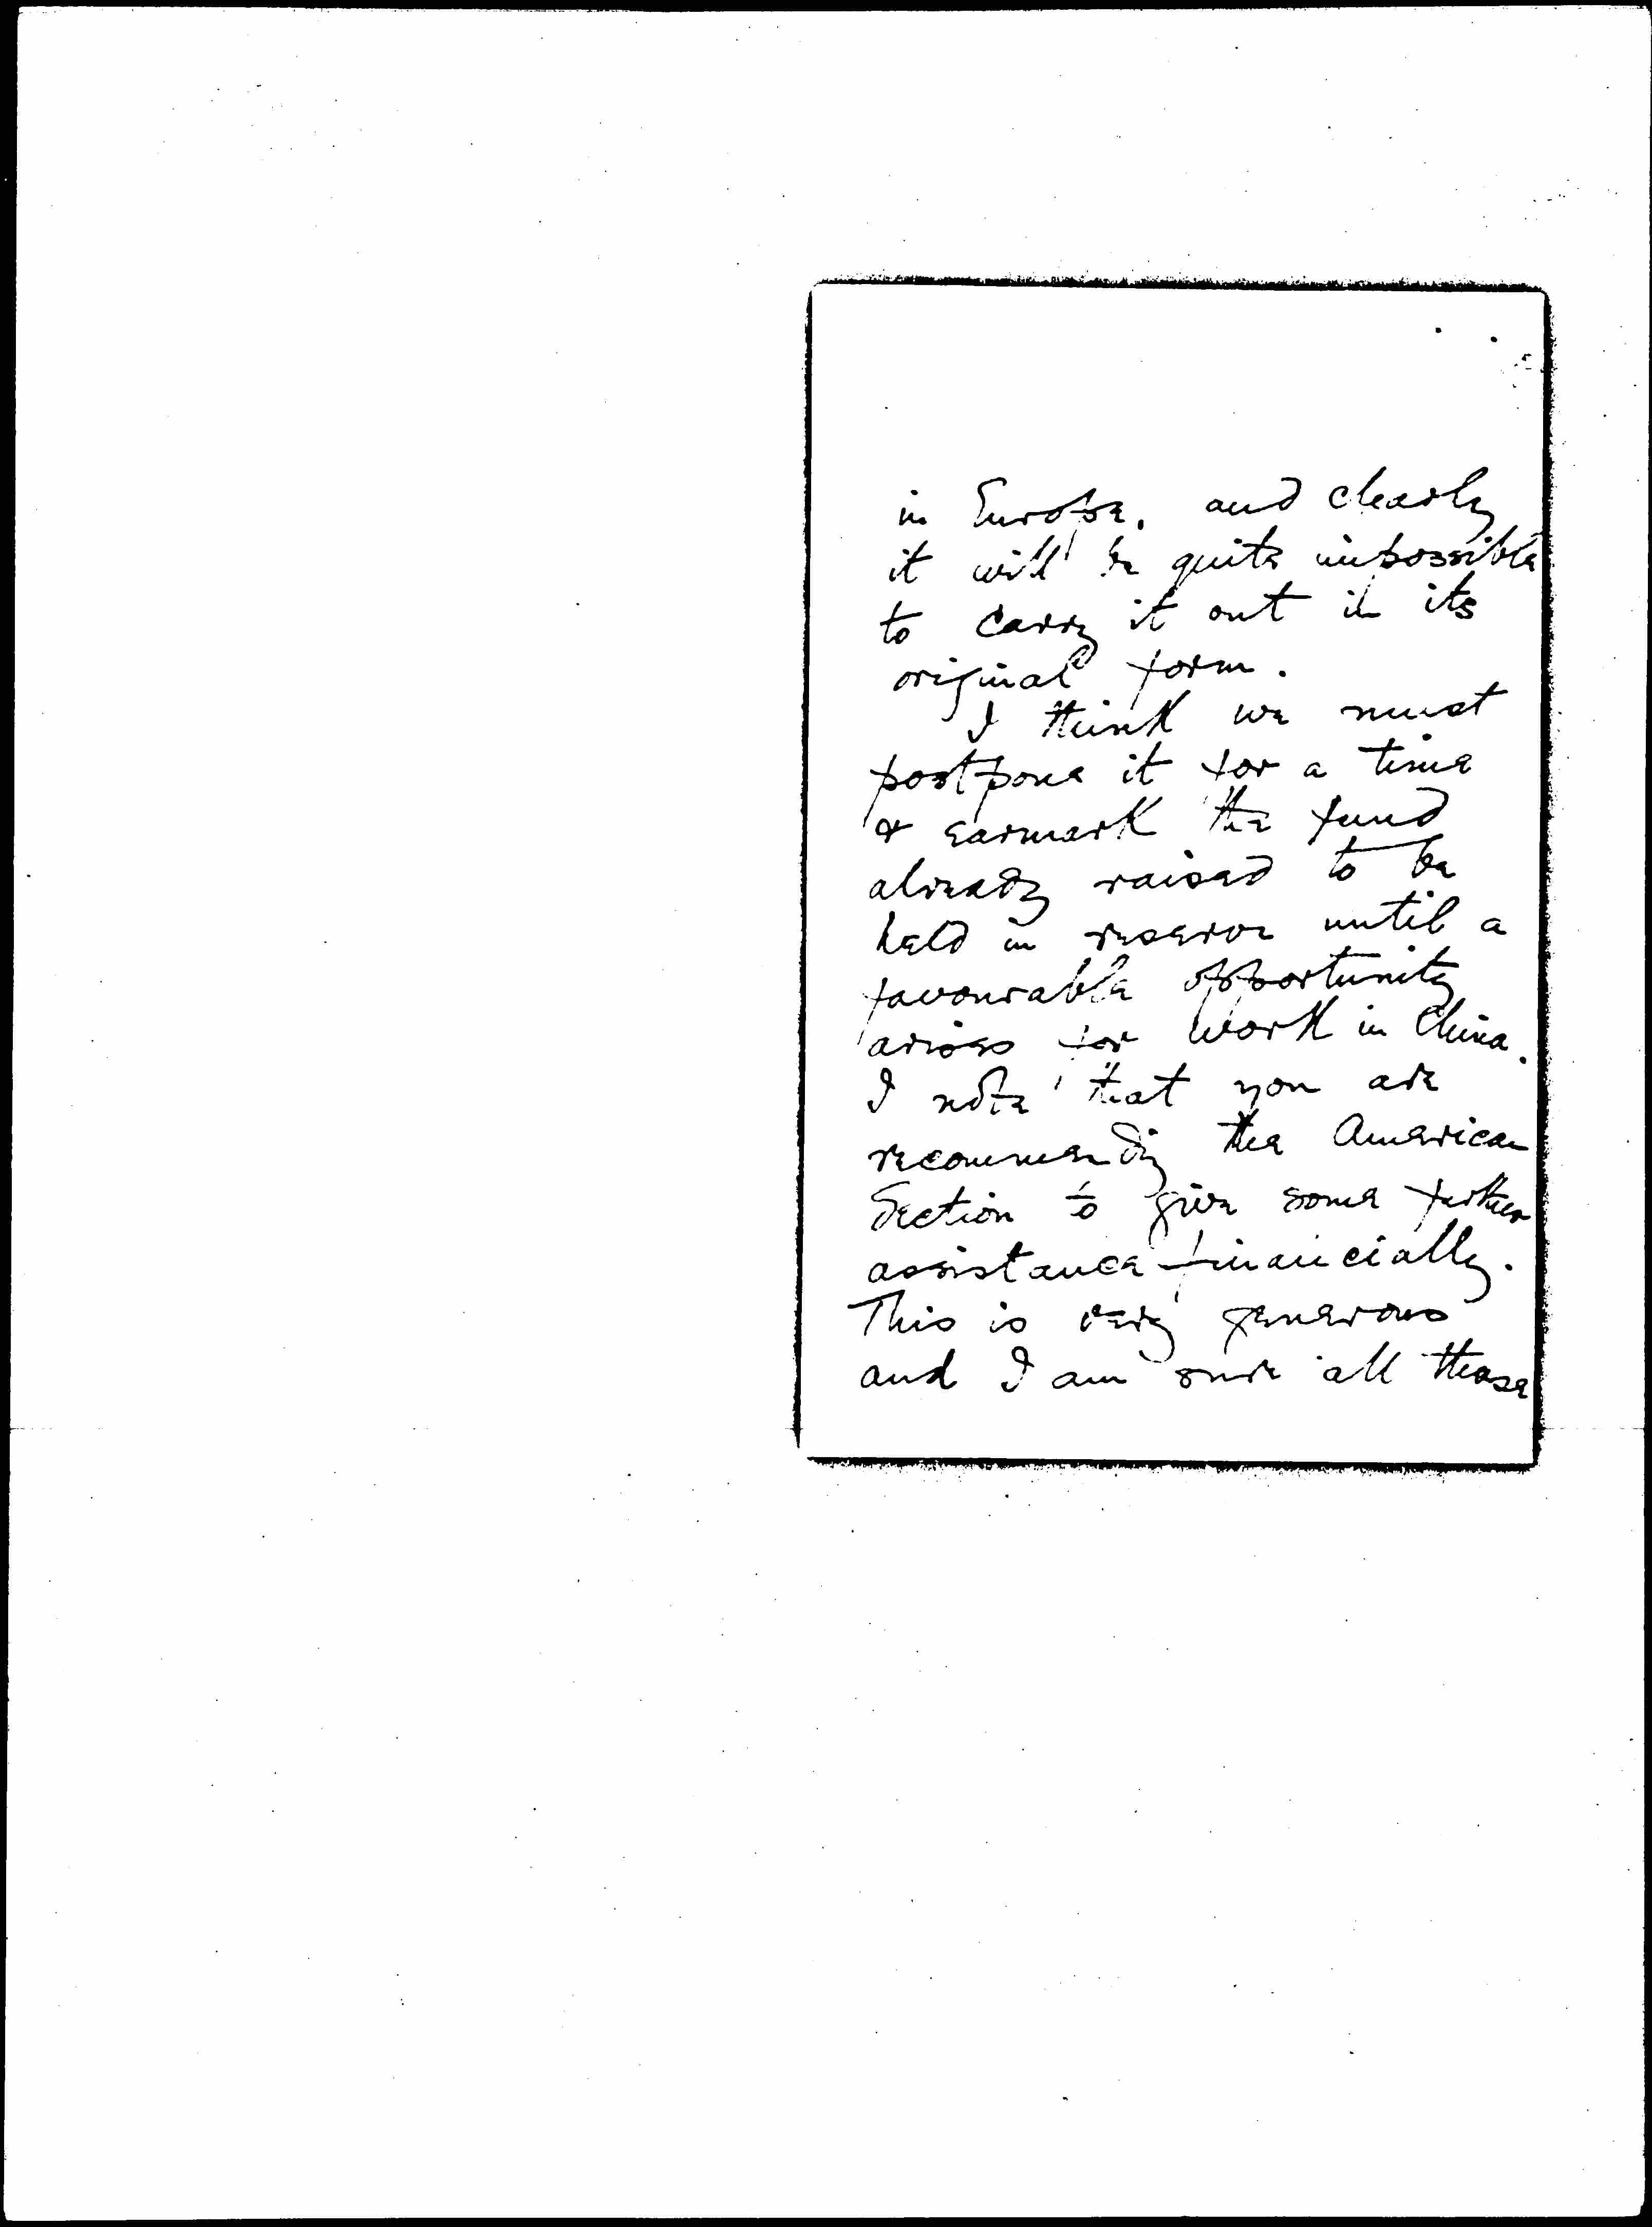 in Europe. and clearly
it will be quite impossible
to carry it out in its
original form.
I think we must
postpone it for a time
& earmark the fund
already raised to be
held in reserve until a
favourable opportunity
arises for work in China.
I note that you are
recommending the American
Section to give some further
assistance financially.
This is very generous
and I am sure all these